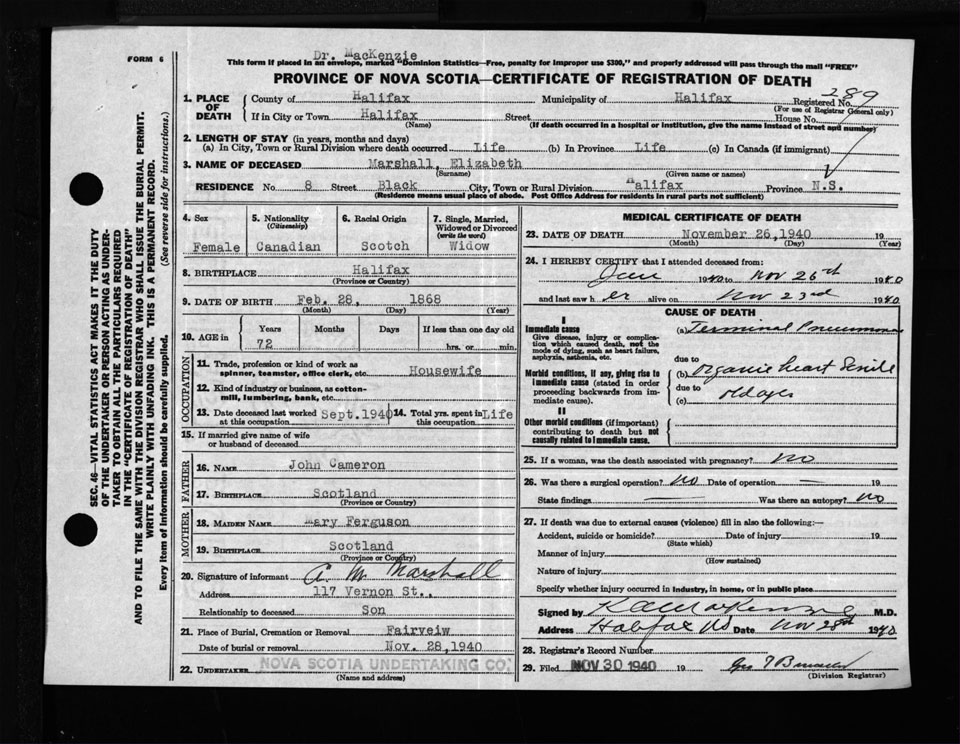 FORM 6
Dr. MacKenzie
This form if placed in an envelope, marked "Dominion Statistics—Free, penalty for improper use $300," and properly addressed will pass through the mail "FREE"
PROVINCE OF NOVA SCOTIA—CERTIFICATE OF REGISTRATION OF DEATH
289
1. PLACE OF DEATH County of Halifax Municipality of Halifax Registered No.
(For use of Registrar General only)
If in City or Town Halifax Street House No.
(Name) (If death occurred in a hospital or institution, give the name instead of street and number)
2. LENGTH OF STAY (in years, months and days)
(a) In City, Town or Rural Division where death occurred Life (b) In Province Life (c) In Canada (if immigrant)
3. NAME OF DECEASED Marshall, Elizabeth
(Surname) (Given name or names)
RESIDENCE No. 8 Street Black City, Town or Rural Division Halifax Province N.S.
(Residence means usual place of abode. Post Office Address for residents in rural parts not sufficient)
SEC. 46—VITAL STATISTICS ACT MAKES IT THE DUTY
OF THE UNDERTAKER OR PERSON ACTING AS UNDER-
TAKER TO OBTAIN ALL THE PARTICULARS REQUIRED
IN THE "CERTIFICATE OF REGISTRATION OF DEATH"
AND TO FILE THE SAME WITH THE DIVISION REGISTRAR WHO SHALL ISSUE THE BURIAL PERMIT.
WRITE PLAINLY WITH UNFADING INK. THIS IS A PERMANENT RECORD.
Every item of information should be carefully supplied. (See reverse side for instructions.)
4. Sex
Female
5. Nationality
(Citizenship)
Canadian
6. Racial Origin
Scotch
7. Single, Married,
Widowed or Divorced
(write the word)
Widow
8. BIRTHPLACE Halifax
(Province or Country)
9. DATE OF BIRTH Feb. 28, 1868
(Month) (Day) (Year)
10. AGE in Years Months Days If less than one day old
72 hrs. or min.
OCCUPATION
11. Trade, profession or kind of work as
spinner, teamster, office clerk, etc. Housewife
12. Kind of industry or business, as cotton-
mill, lumbering, bank, etc.
13. Date deceased last worked Sept. 1940 14. Total yrs. spent in Life
at this occupation this occupation
15. If married give name of wife
or husband of deceased
FATHER
16. NAME John Cameron
17. BIRTHPLACE Scotland
(Province or Country)
MOTHER
18. MAIDEN NAME Mary Ferguson
19. BIRTHPLACE Scotland
(Province or Country)
20. Signature of informant A. M. Marshall
Address 117 Vernon St.,
Relationship to deceased Son
21. Place of Burial, Cremation or Removal Fairveiw
Date of burial or removal Nov. 28, 1940
22. UNDERTAKER NOVA SCOTIA UNDERTAKING CO.
(Name and address)
MEDICAL CERTIFICATE OF DEATH
23. DATE OF DEATH November 26, 1940 19
(Month) (Day) (Year)
24. I HEREBY CERTIFY that I attended deceased from:
June 1940 to Nov 26th 1940
and last saw her alive on Nov 23rd 1940
CAUSE OF DEATH
I
Immediate cause (a) Terminal Pneumonia
Give disease, injury or complica-
tion which caused death, not the
mode of dying, such as heart failure,
asphyxia, asthenia, etc.
due to
Morbid conditions, if any, giving rise to
immediate cause (stated in order
proceeding backwards from im-
mediate cause).
(b) Organic heart Senile
due to
(c) old age
II
Other morbid conditions (if important)
contributing to death but not
causally related to immediate cause.
25. If a woman, was the death associated with pregnancy? No
26. Was there a surgical operation? No Date of operation — 19
State findings — Was there an autopsy? No
27. If death was due to external causes (violence) fill in also the following:—
Accident, suicide or homicide? Date of injury 19
(State which)
Manner of injury
(How sustained)
Nature of injury
Specify whether injury occurred in industry, in home, or in public place
Signed by MacKenzie M.D.
Address Halifax NS Date Nov 28th 1940
28. Registrar's Record Number
29. Filed NOV 30 1940 19
(Division Registrar)